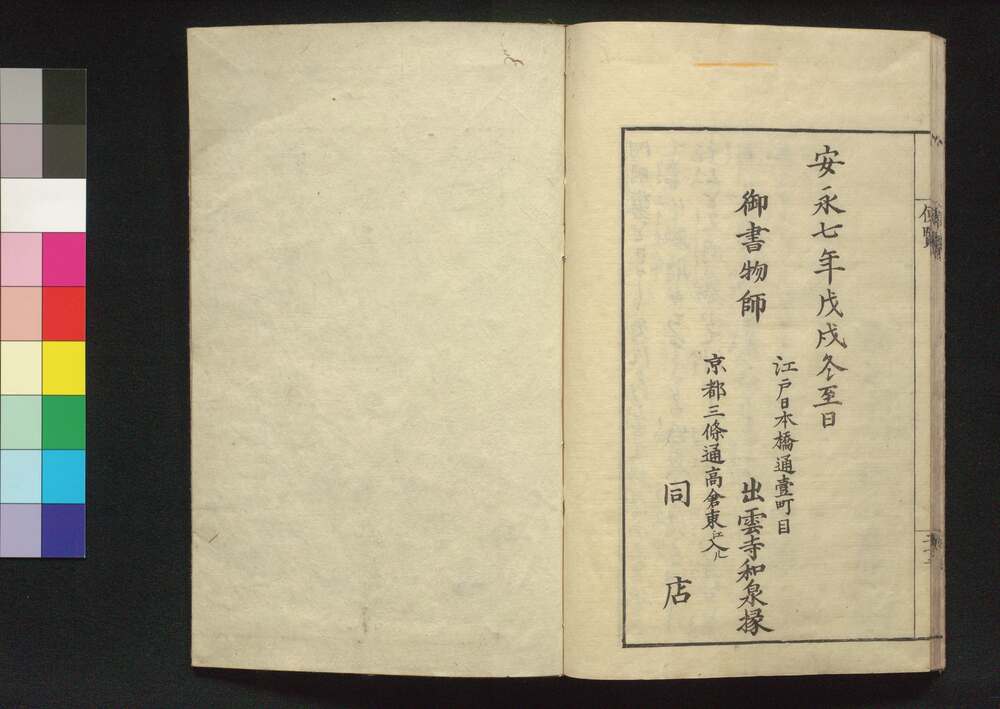 安永七年戊戌冬至日
御書物師
江戸日本橋通壹町目
出雲寺和泉掾
京都三條通高倉東江入ル
同店